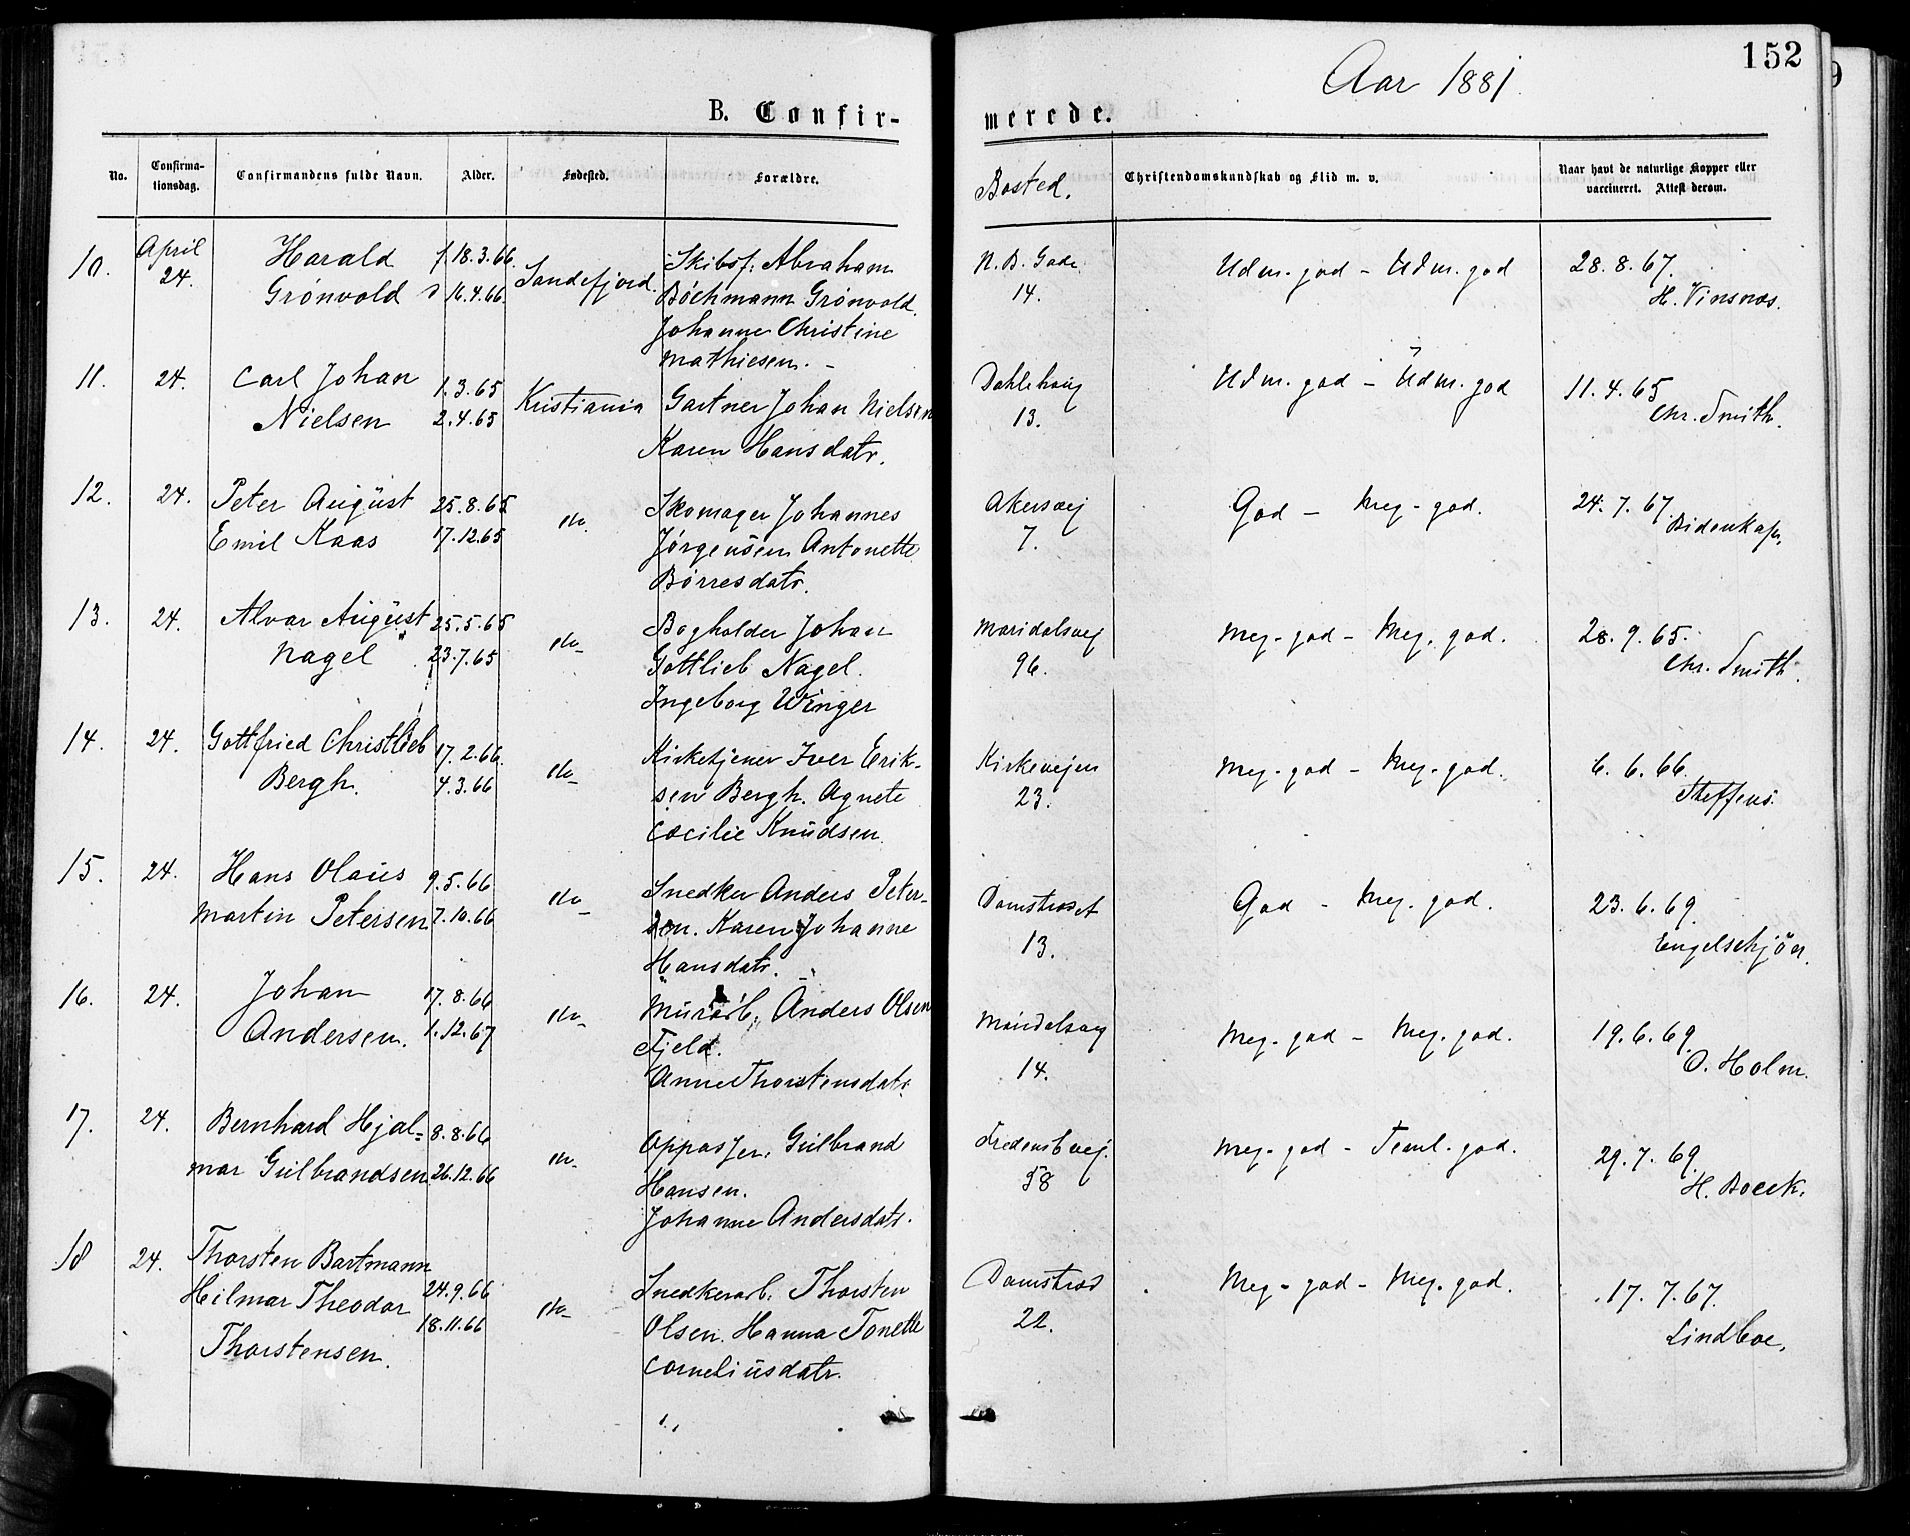 152
Aar 1881.
B. Confir-
merede.
No.
Confirma-
tionsdag.
Confirmandens fulde Navn.
Alder.
Fødested.
Forældre.
Bosted.
Christendomskundskab og Flid m. v.
Naar havt de naturlige Kopper eller
vaccineret. Attest derom.
10. April Harald f. 18.3.66. Sandefjord. Skibsf. Abraham N. B. Gade Udm. god - Udm. god 28. 8. 67.
24. Grønvold d 16.4.66. Bøchmann Grønvold. 14. H. Vinsnæs.
Johanne Christine
Mathiesen. -
11. 24. Carl Johan 1.3.65 Kristiania Gartner Johan Nielsen Dahlehaug Udm. god - Udm. god 11. 4. 65
Nielsen 2.4.65 Karen Hansdatr. 13. Chr. Smith.
12. 24. Peter August 25.8.65 do. Skomager Johannes Akersvej God - Meg. god. 24. 7. 67.
Emil Kaas 17.12.65 Jørgensen Antonette 7. Bidenkap.
Børresdatr.
13. 24. Alvar August 25.5.65 do Bogholder Johan Maridalsvej Meg. god - Meg. god. 28. 9. 65.
Nagel 23.7.65 Gottlieb Nagel. 96. Chr. Smith.
Ingeborg Winger
14. 24. Gottfried Christlieb 17.2.66. do Kirketjener Iver Erik- Kirkevejen Meg. god - Meg. god. 6. 6. 66.
Bergh. 4.3.66 sen Bergh. Agnete 23. Steffens.
Cæcilie Knudsen.
15. 24. Hans Olaus 9.5.66 do Snedker Anders Peter- Damstrædet God - Meg. god. 23. 6. 69.
Martin Petersen 7.10.66 sen. Karen Johanne 13. Engelschjön.
Hansdatr.
16. 24. Johan 17.8.66 do Murarb. Anders Olsen Meg. god - Meg. god. 19. 6. 69.
Andersen. 1.12.67 Fjeld. 14. O. Holm.
Anne Thorstensdatr.
17. 24. Bernhard Hjal- 8.8.66 do Oppasser Gulbrand Fredensbvej. Meg. god - Teml. god. 29. 7. 69.
mar Gulbrandsen 26.12.66 Hansen. 58 H. Boeck.
Johanne Andersdatr.
18 24. Thorsten Bartmann
Hilmar Theodor 24.9.66 do Snedkerarb. Thorsten Damstræd Meg. god - Meg. god. 17. 7. 67.
Thorstensen. 18.11.66 Olsen. Hanna Tonette 22. Lindboe.
Corneliusdatr.